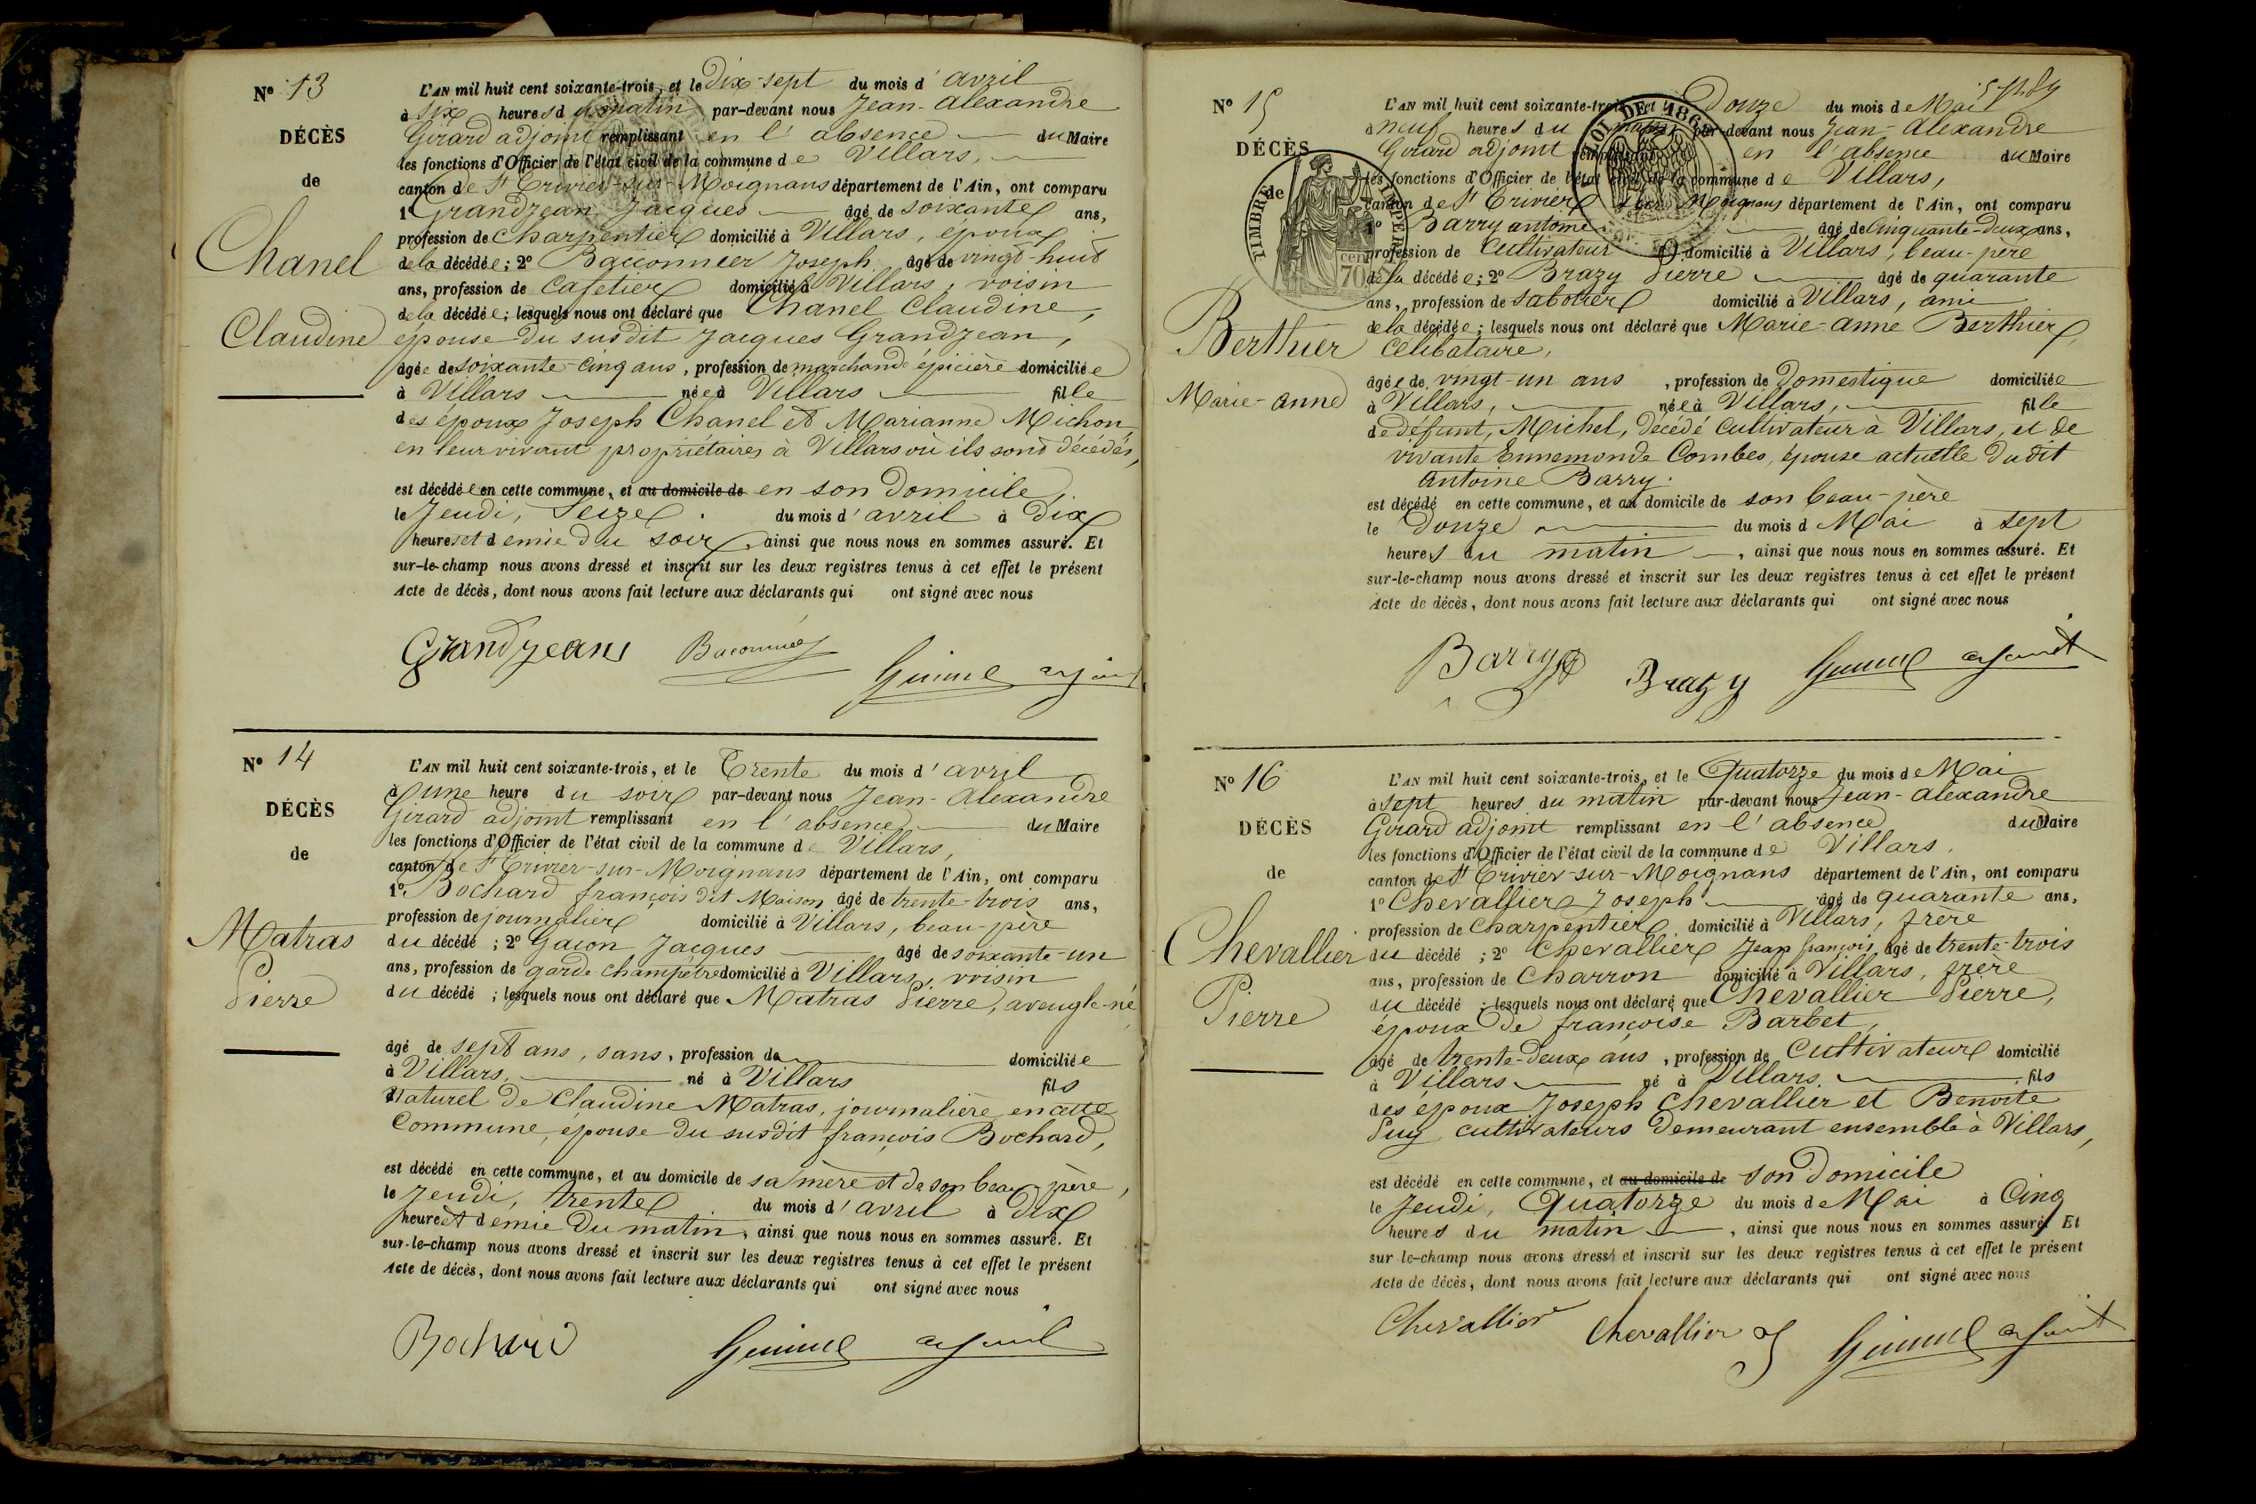 N° 13
DÉCÈS
de
Chanel
Claudine
L'AN mil huit cent soixante-trois, et le Dix-sept du mois d'avril
à six heures du matin par-devant nous Jean-Alexandre
Girard adjoint remplissant en l'absence du Maire
les fonctions d'Officier de l'état civil de la commune de Villars,
canton de St Trivier-sur-Moignans département de l'Ain, ont comparu
1° Grandjean Jacques âgé de soixante ans,
profession de charpentier domicilié à Villars, époux
de la décédée; 2° Bacconnier Joseph âgé de vingt-huit
ans, profession de Cafetier domicilié à Villars, voisin
de la décédée; lesquels nous ont déclaré que Chanel Claudine,
épouse du susdit Jacques Grandjean,
âgée de soixante-cinq ans, profession de marchande épicière domiciliée
à Villars née à Villars fille
des époux Joseph Chanel et Marianne Michon
en leur vivant propriétaires à Villars où ils sont décédés,
est décédée en cette commune, et au domicile de en son Domicile,
le Jeudi, Seize du mois d'avril à Dix
heures et demie du soir, ainsi que nous nous en sommes assuré. Et
sur-le-champ nous avons dressé et inscrit sur les deux registres tenus à cet effet le présent
Acte de décès, dont nous avons fait lecture aux déclarants qui ont signé avec nous
Grandjean Baconnier adjoint
N° 14
DÉCÈS
de
Matras
Pierre
L'AN mil huit cent soixante-trois, et le Trente du mois d'avril
à une heure du soir par-devant nous Jean-Alexandre
Girard adjoint remplissant en l'absence du Maire
les fonctions d'Officier de l'état civil de la commune de Villars,
canton de St Trivier-sur-Moignans département de l'Ain, ont comparu
1° Bochard françois dit Maison âgé de trente-trois ans,
profession de journalier domicilié à Villars, beau-père
du décédé ; 2° Gacon Jacques âgé de soixante-un
ans, profession de garde champêtre domicilié à Villars, voisin
du décédé ; lesquels nous ont déclaré que Matras Pierre, aveugle-né
âgé de sept ans, sans, profession de domiciliée
à Villars, né à Villars fils
Naturel de Claudine Matras, journalière en cette
Commune, épouse du susdit françois Bochard,
est décédé en cette commune, et au domicile de sa mère et de son beau-père,
le Jeudi, trente du mois d'avril à dix
heures et demie du matin, ainsi que nous nous en sommes assuré. Et
sur-le-champ nous avons dressé et inscrit sur les deux registres tenus à cet effet le présent
Acte de décès, dont nous avons fait lecture aux déclarants qui ont signé avec nous
Bochard adjoint
N° 15
DÉCÈS
de
Berthier
Marie-anne
TIMBRE IMPERIAL
70 cen
LOI DE 186
L'AN mil huit cent soixante-trois et le Douze du mois de Mai
à neuf heures du matin par-devant nous Jean-Alexandre
Girard adjoint remplissant en l'absence du Maire
les fonctions d'Officier de l'état civil de la commune de Villars,
canton de St Trivier sur Moignans département de l'Ain, ont comparu
1° Barry antoine âgé de Cinquante-deux ans,
profession de Cultivateur domicilié à Villars, beau-père
de la décédée; 2° Brazy Pierre âgé de quarante
ans, profession de sabotier domicilié à Villars, ami
de la décédée; lesquels nous ont déclaré que Marie-anne Berthier,
célibataire,
âgée de vingt-un ans, profession de Domestique domiciliée
à Villars, née à Villars, fille
de défunt, Michel, décédé cultivateur à Villars, et de
vivante Ennemonde Combes, épouse actuelle dudit
Antoine Barry.
est décédé en cette commune, et au domicile de son beau-père
le Douze du mois d Mai à sept
heures du matin, ainsi que nous nous en sommes assuré. Et
sur-le-champ nous avons dressé et inscrit sur les deux registres tenus à cet effet le présent
Acte de décès, dont nous avons fait lecture aux déclarants qui ont signé avec nous
Barry Brazy adjoint
N° 16
DÉCÈS
de
Chevallier
Pierre
L'AN mil huit cent soixante-trois, et le Quatorze du mois de Mai
à sept heures du matin par-devant nous Jean-Alexandre
Girard adjoint remplissant en l'absence du Maire
les fonctions d'Officier de l'état civil de la commune de Villars,
canton de St Trivier-sur-Moignans département de l'Ain, ont comparu
1° Chevallier Joseph âgé de quarante ans,
profession de Charpentier domicilié à Villars, frère
du décédé ; 2° Chevallier Jean françois, âgé de trente-trois
ans, profession de Charron domicilié à Villars, frère
du décédé ; lesquels nous ont déclaré que Chevallier Pierre,
époux de françoise Barbet,
âgé de trente-deux ans, profession de Cultivateur domicilié
à Villars né à Villars, fils
des époux Joseph Chevallier et Benoite
Puy cultivateurs Demeurant ensemble à Villars,
est décédé en cette commune, et au domicile de son domicile
le Jeudi, Quatorze du mois de Mai à Cinq
heures du matin, ainsi que nous nous en sommes assuré. Et
sur-le-champ nous avons dressé et inscrit sur les deux registres tenus à cet effet le présent
Acte de décès, dont nous avons fait lecture aux déclarants qui ont signé avec nous
Chevallier Chevallier adjoint